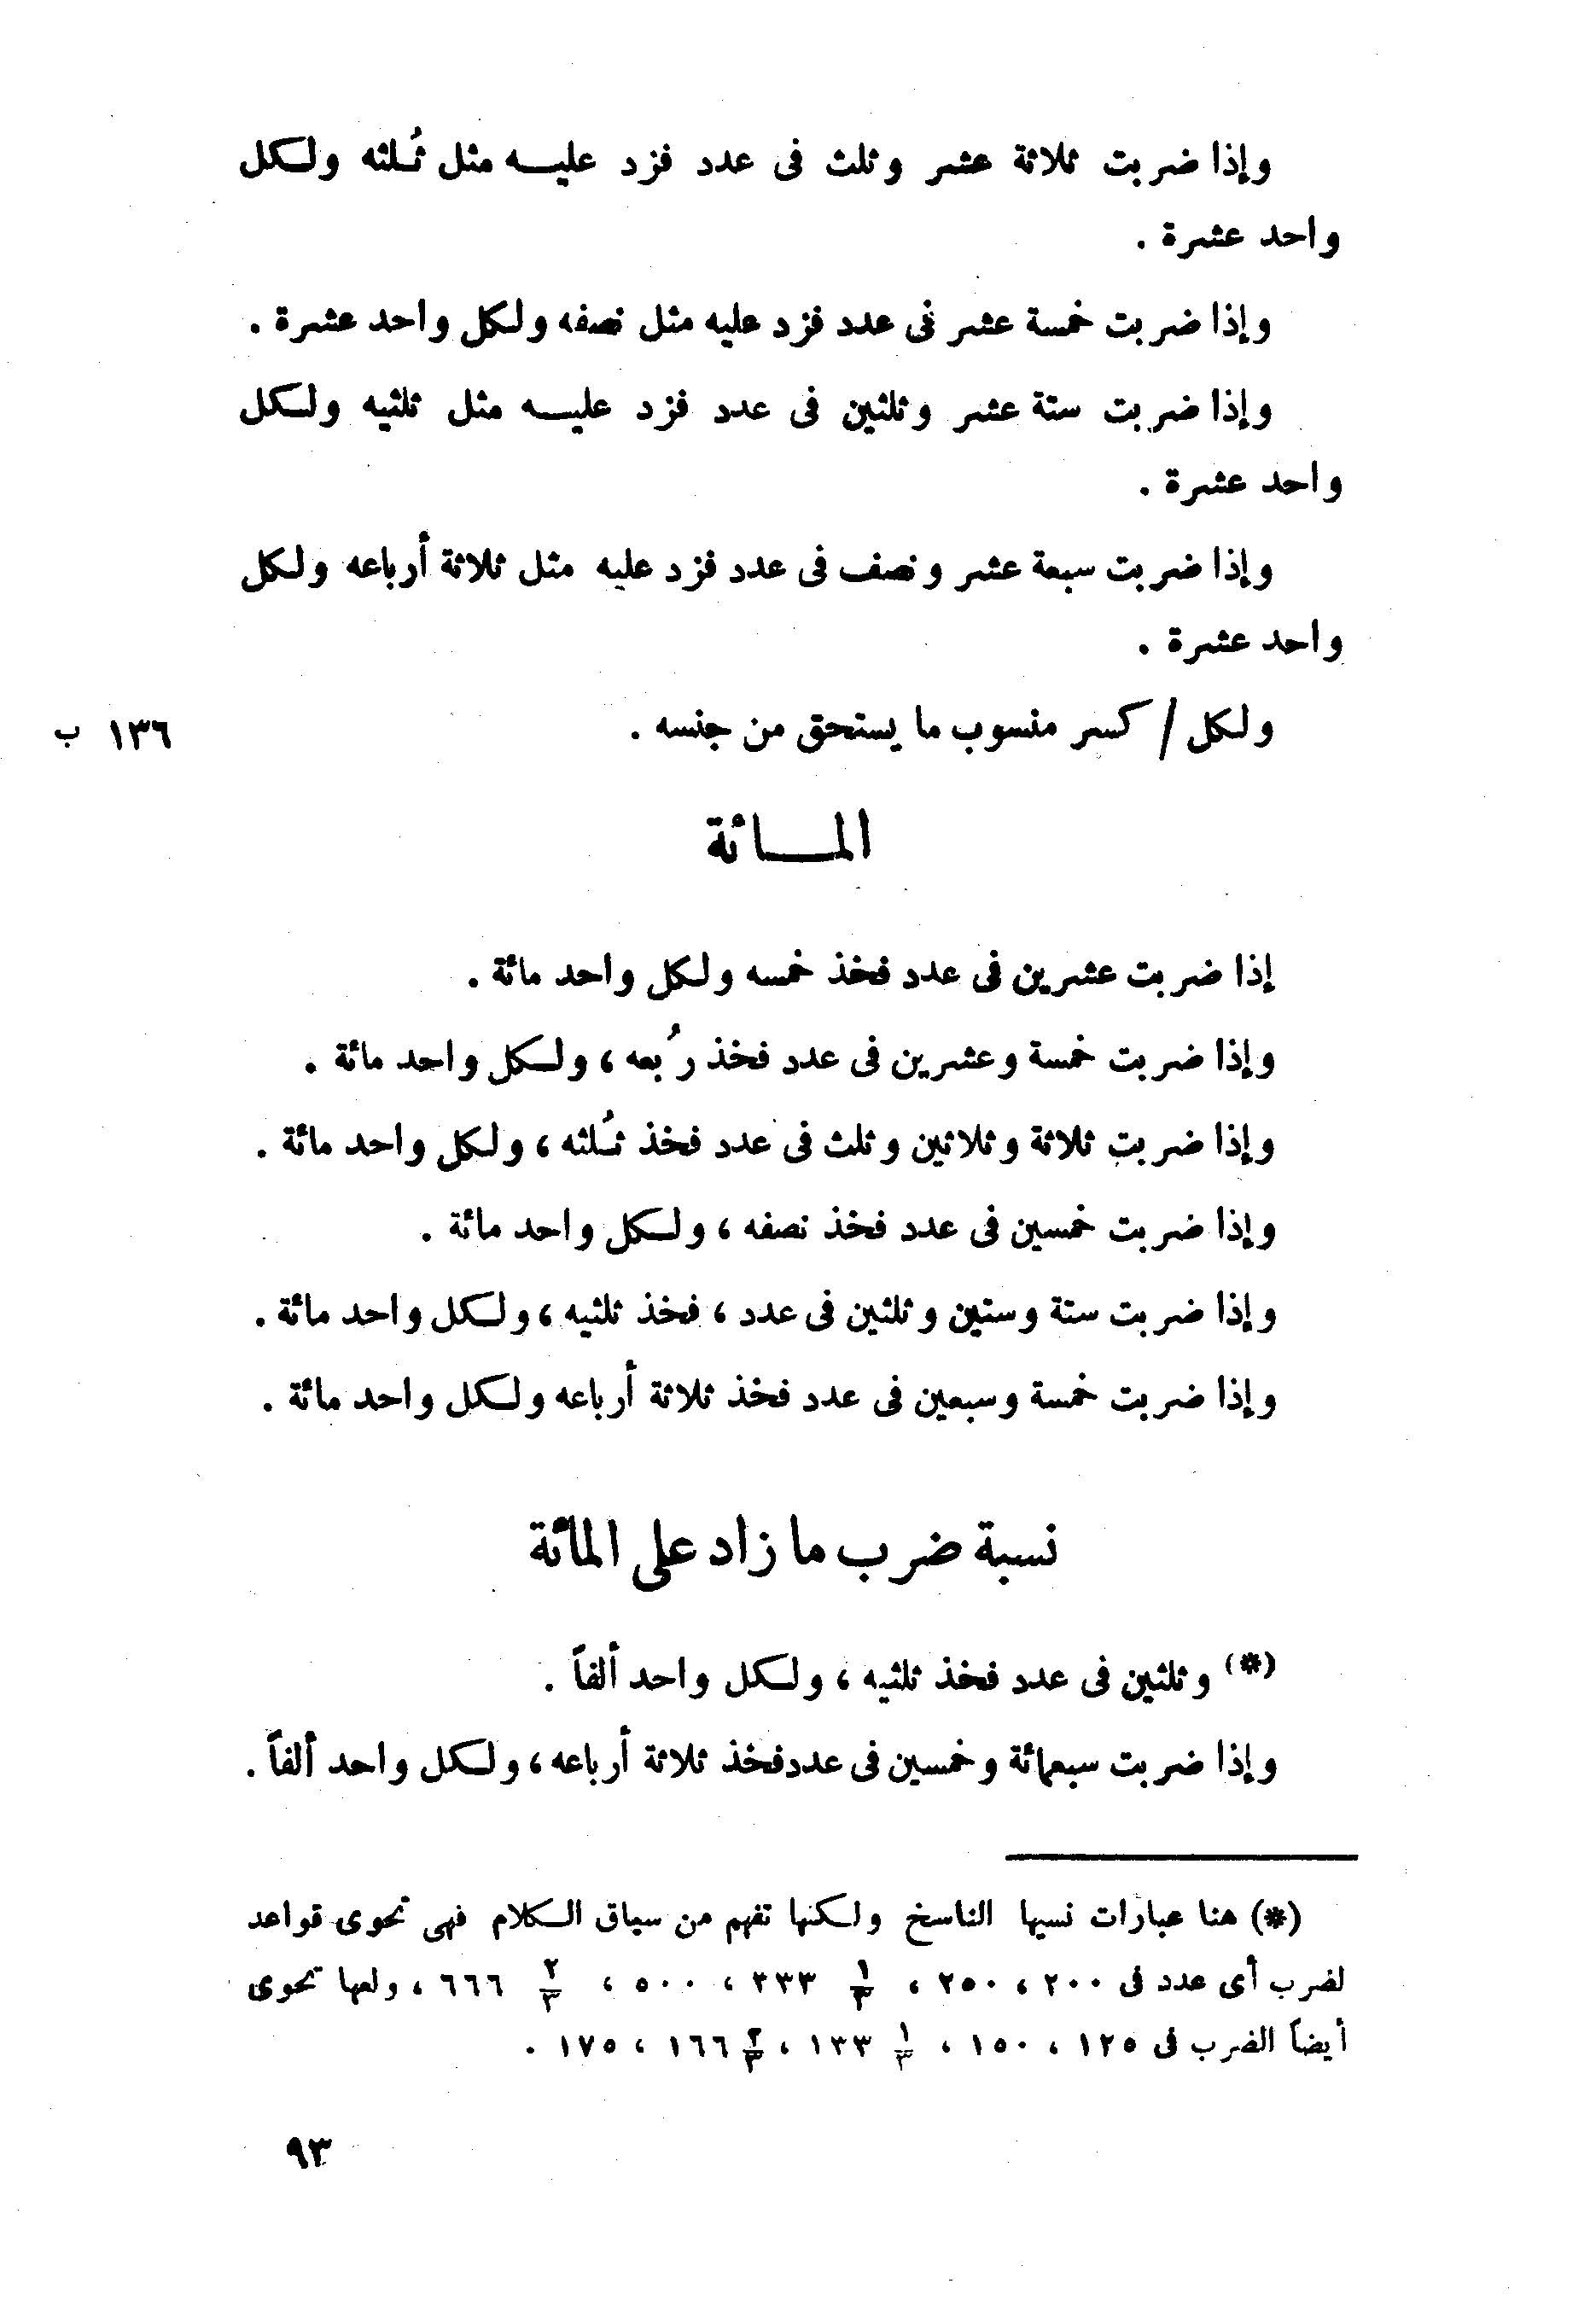 وإذا ضربت ثلاثة عشر وثلث فى عدد فزد عليـــه مثل ثُـلثه ولـكل
واحد عشرة .
وإذا ضربت خمسة عشر فى عدد فزد عليه مثل نصفه ولكل واحد عشرة .
وإذا ضربت ستة عشر وثلثين فى عدد فزد عليـــه مثل ثلثيه ولـكل
واحد عشرة .
وإذا ضربت سبعة عشر ونصف فى عدد فزد عليه مثل ثلاثة أرباعه ولكل
واحد عشرة .
ولكل / كسر منسوب ما يستحق من جنسه . ١٣٦ ب
المـــائة
إذا ضربت عشرين فى عدد فخذ خمسه ولكل واحد مائة .
وإذا ضربت خمسة وعشرين فى عدد فخذ رُبعه ، ولـكل واحد مائة .
وإذا ضربت ثلاثة وثلاثين وثلث فى عدد فخذ ثُـلثه ، ولكل واحد مائة .
وإذا ضربت خمسين فى عدد فخذ نصفه ، ولـكل واحد مائة .
وإذا ضربت ستة وستين وثلثين فى عدد ، فخذ ثلثيه ، ولـكل واحد مائة .
وإذا ضربت خمسة وسبعين فى عدد فخذ ثلاثة أرباعه ولـكل واحد مائة .
نسبة ضرب ما زاد على المائة
(*) وثلثين فى عدد فخذ ثلثيه ، ولـكل واحد ألفاً .
وإذا ضربت سبعمائة وخمسين فى عدد فخذ ثلاثة أرباعه ، ولـكل واحد ألفاً .
(*) هنا عبارات نسيها الناسخ ولـكنها تفهم من سياق الـكلام فهى تحوى قواعد
لضرب أى عدد فى ٢٠٠ ، ٢٥٠ ، ١/٣ ٣٣٣ ، ٥٠٠ ، ٢/٣ ٦٦٦ ، ولعلها تحوى
أيضاً الضرب فى ١٢٥ ، ١٥٠ ، ١/٣ ١٣٣ ، ٢/٣ ١٦٦ ، ١٧٥ .
٩٣